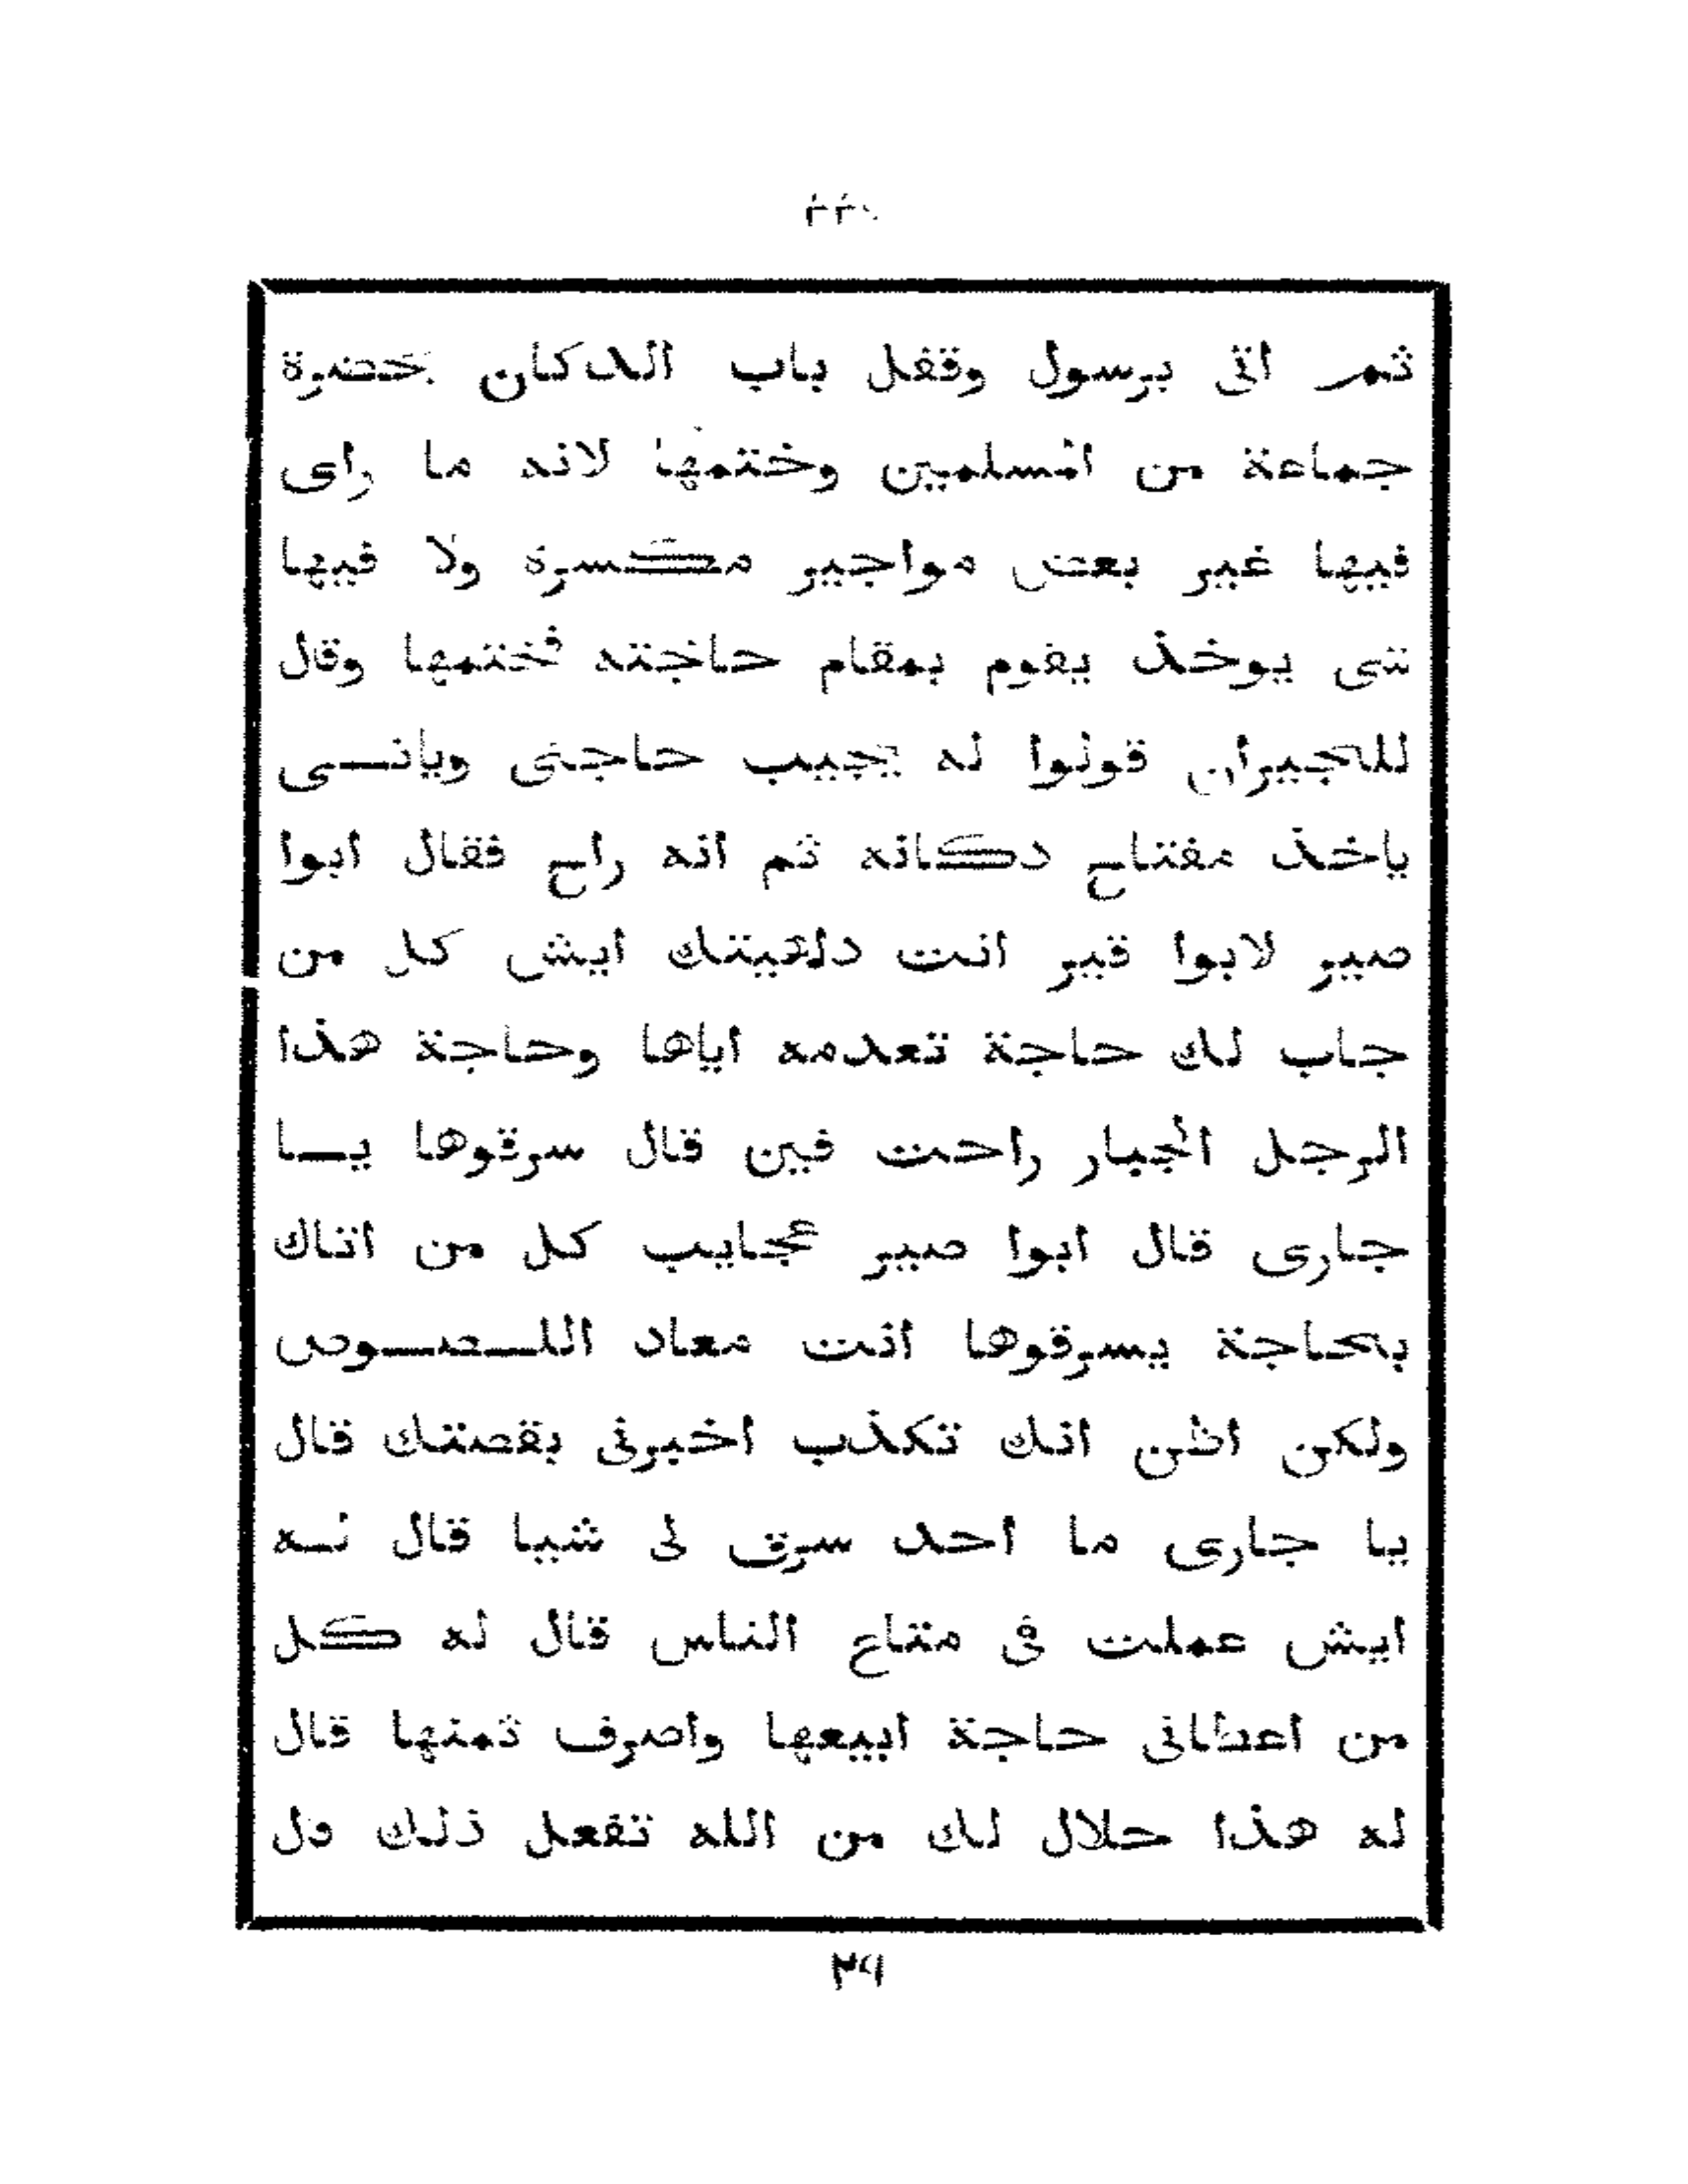 ثم اتى برسول وقفل باب الدكان بحضرة
جماعة من المسلمين وختمها لانه ما راى
فيها غير بعض مواجير مكسرة ولا فيها
شى يوخذ يقوم بمقام حاجته فختمها وقال
للجيران قولوا له يجيب حاجتى ويانى
ياخذ مفتاح دكانه ثم انه راح فقال ابوا
صير لابوا قير انت داهيتك ايش كل من
جاب لك حاجة تعدمه اياها وحاجة هذا
الرجل الجبار راحت فين قال سرقوها يا
جارى قال ابوا صير عجايب كل من اتاك
بحاجة يسرقوها انت معاد اللصوص
ولكن اظن انك تكذب اخبرنى بقصتك قال
يا جارى ما احد سرق لى شيا قال له
ايش عملت فى متاع الناس قال له كل
من اعطانى حاجة ابيعها واصرف ثمنها قال
له هذا حلال لك من الله تفعل ذلك قال
٢٩